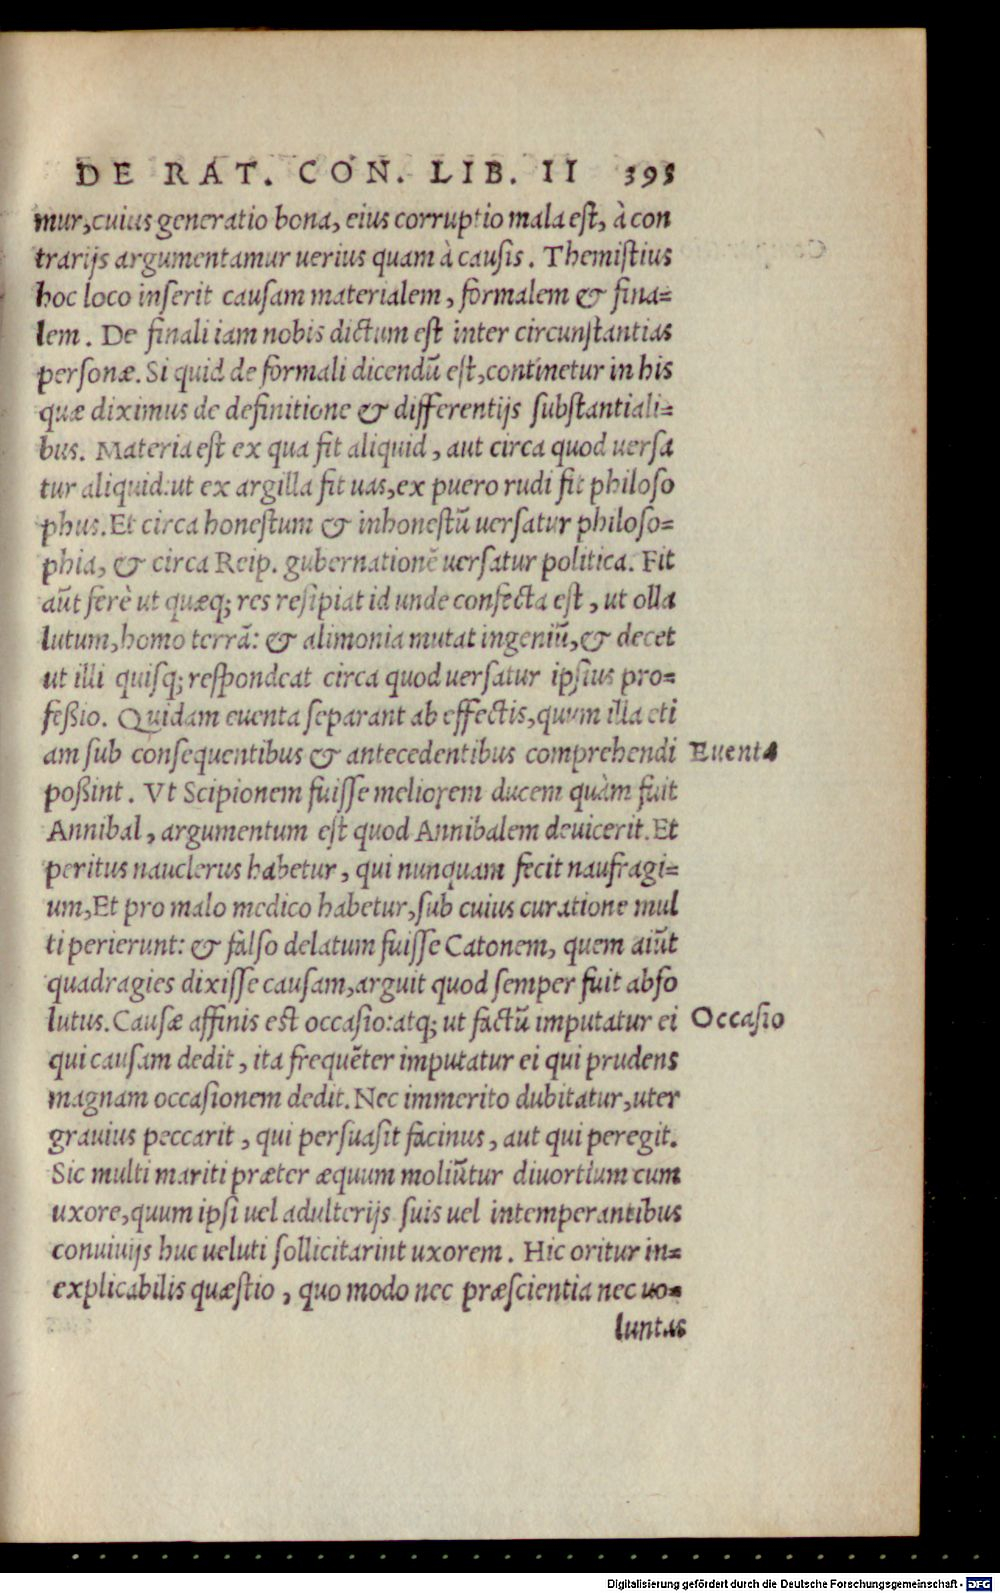 DE RAT. CON. LIB. II 395
mur, cuius generatio bona, eius corruptio mala est, à con
trarijs argumentamur uerius quam à causis. Themistius
hoc loco inserit causam materialem, formalem & fina=
lem. De finali iam nobis dictum est inter circunstantias
personæ. Si quid de formali dicendū est, continetur in his
quæ diximus de definitione & differentijs substantiali=
bus. Materia est ex qua fit aliquid, aut circa quod uersa
tur aliquid: ut ex argilla fit uas, ex puero rudi fit philoso
phus. Et circa honestum & inhonestū uersatur philoso=
phia, & circa Reip. gubernationē uersatur politica. Fit
aūt ferè ut quæq; res resipiat id unde confecta est, ut olla
lutum, homo terrā: & alimonia mutat ingeniū, & decet
ut illi quisq; respondeat circa quod uersatur ipsius pro=
feßio. Quidam euenta separant ab effectis, quum illa eti
am sub consequentibus & antecedentibus comprehendi
Euenta
poßint. Vt Scipionem fuisse meliorem ducem quàm fuit
Annibal, argumentum est quod Annibalem deuicerit. Et
peritus nauclerus habetur, qui nunquam fecit naufragi=
um, Et pro malo medico habetur, sub cuius curatione mul
ti perierunt: & falso delatum fuisse Catonem, quem aiūt
quadragies dixisse causam, arguit quod semper fuit abso
lutus. Causæ affinis est occasio: atq; ut factū imputatur ei
Occasio
qui causam dedit, ita frequēter imputatur ei qui prudens
magnam occasionem dedit. Nec immerito dubitatur, uter
grauius peccarit, qui persuasit facinus, aut qui peregit.
Sic multi mariti præter æquum moliūtur diuortium cum
uxore, quum ipsi uel adulterijs suis uel intemperantibus
conuiuijs huc ueluti sollicitarint uxorem. Hic oritur in=
explicabilis quæstio, quo modo nec præscientia nec uo=
luntas
Digitalisierung gefördert durch die Deutsche Forschungsgemeinschaft - DFG